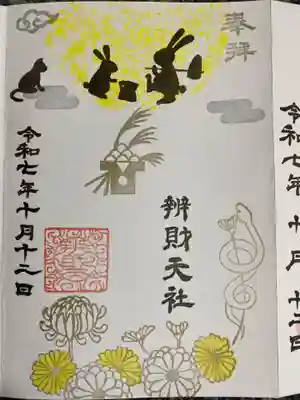 令和七年十月十二日
奉拝
辨財天社
令和七年十月十二日